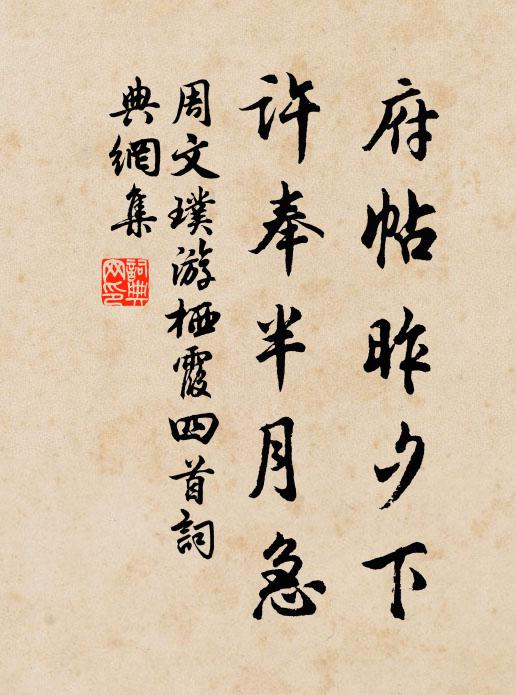 府帖昨夕下
許奉半月急
周文璞游栖霞四首詞
典網集
詞典
网印